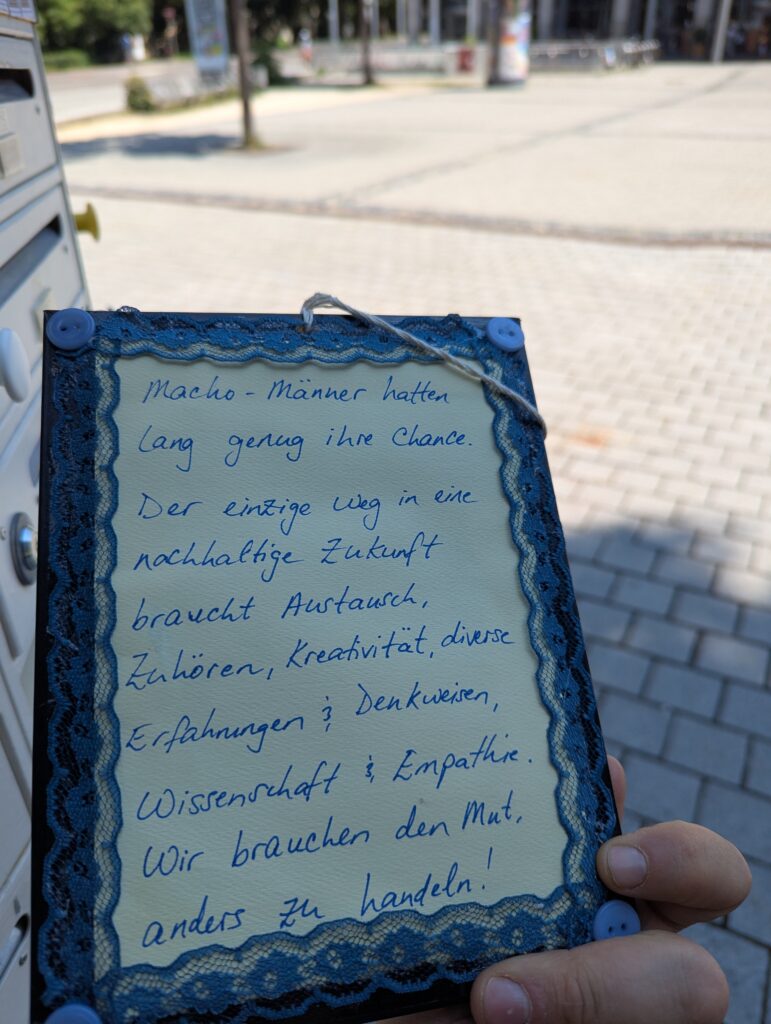 Macho-Männer hatten
lang genug ihre Chance.
Der einzige Weg in eine
nachhaltige Zukunft
braucht Austausch,
Zuhören, Kreativität, diverse
Erfahrungen & Denkweisen,
Wissenschaft & Empathie.
Wir brauchen den Mut,
anders zu handeln!